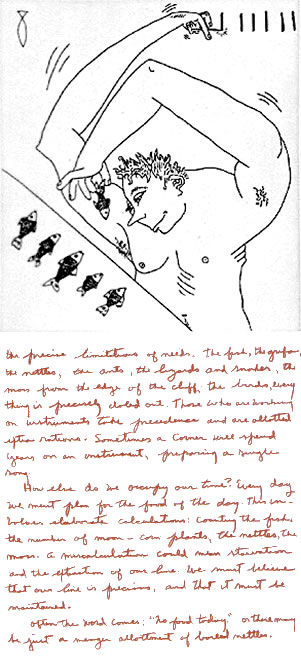 the precise limitations of needs. The fish, the grifa,
the nettles, the ants, the lizards and snakes, the
moss from the edge of the cliff, the birds, every
thing is precisely doled out. Those who are working
on instruments take precedence and are allotted
extra rations. Sometimes a Comer will spend
years on an instrument, preparing a single
song.
How else do we occupy our time? Every day
we must plan for the food of the day. This in-
volves elaborate calculations: counting the fish,
the number of moon-corn plants, the nettles, the
moss. A miscalculation could mean starvation
and the extinction of our line. We must believe
that our line is precious, and that it must be
maintained.
Often the word comes: "No food today" or there may
be just a meager allotment of boiled nettles.